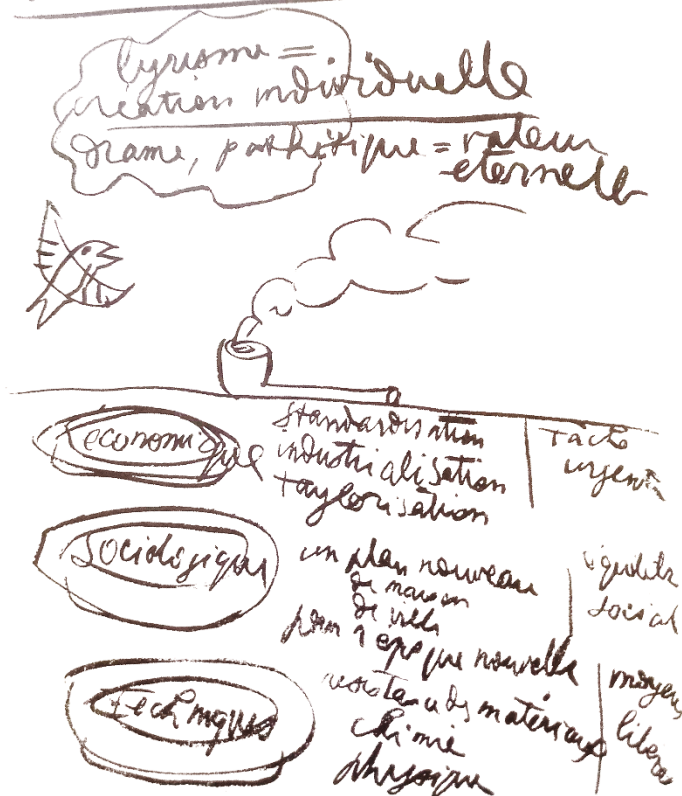 lyrisme =
création individuelle
drame, pathétique = valeur
éternelle
économique
standardisation
industrialisation
taylorisation
urgent
sociologique
un plan nouveau
de maison
de ville
pour l'époque nouvelle
social
techniques
résistance des matériaux
chimie
physique
moyens